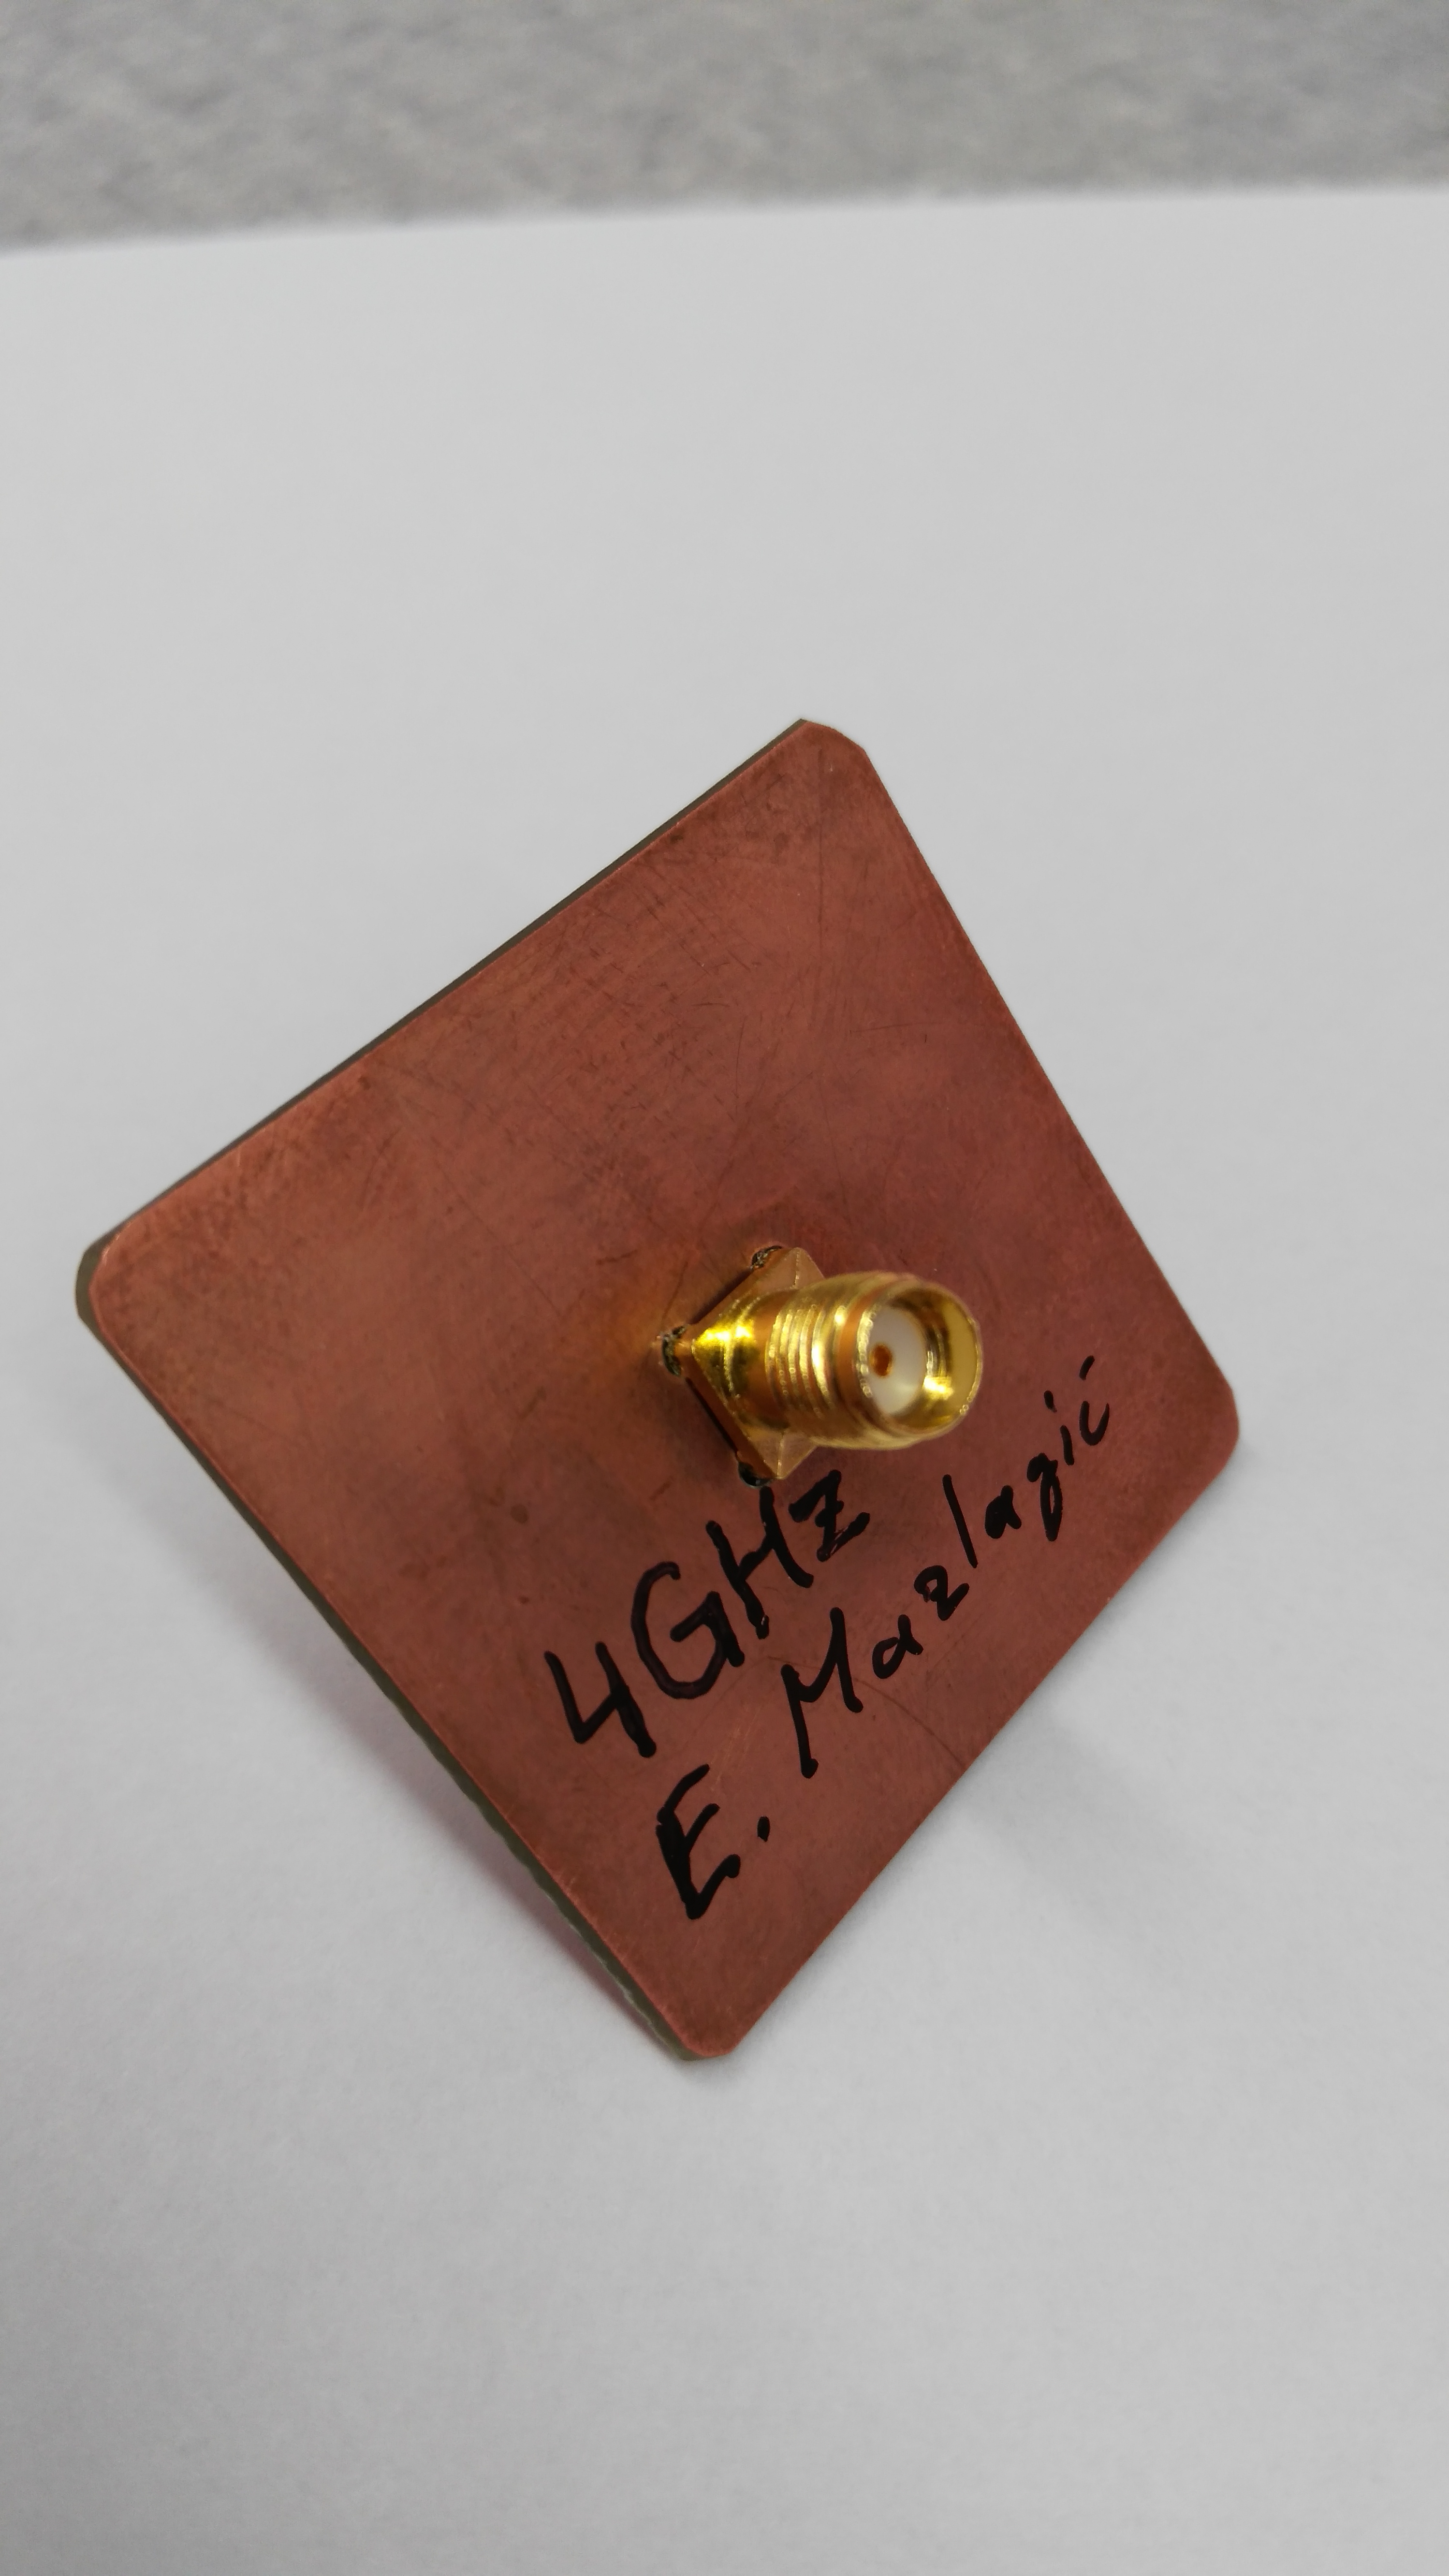 4GHz
E. Mazlagić